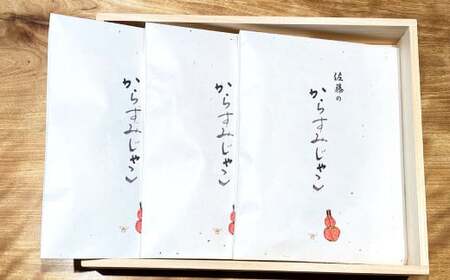 からすみじゃこ
からすみじゃこ
佐藤の
からすみじゃこ